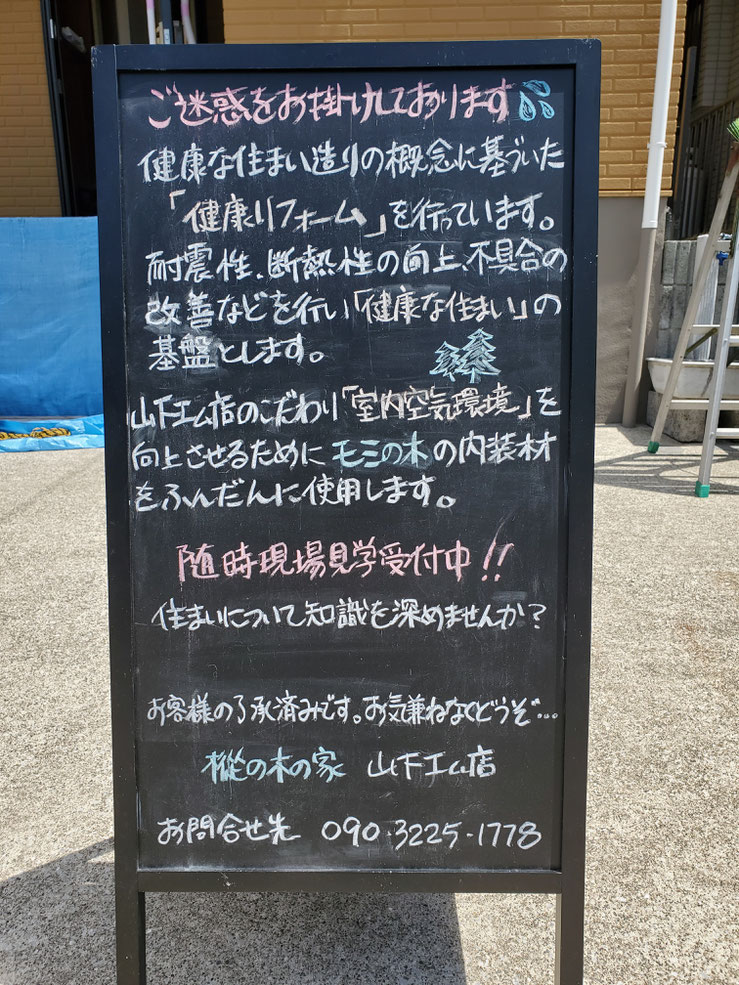 ご迷惑をお掛けしております
健康な住まい造りの概念に基づいた
「健康リフォーム」を行っています。
耐震性、断熱性の向上、不具合の
改善などを行い「健康な住まい」の
基盤とします。
山下工ム店のこだわり「室内空気環境」を
向上させるために モミの木 の内装材
をふんだんに使用します。
随時現場見学受付中!!
住まいについて知識を深めませんか?
お客様の了承済みです。お気兼ねなくどうぞ…
樅の木の家 山下工ム店
お問合せ先 090-3225-1778